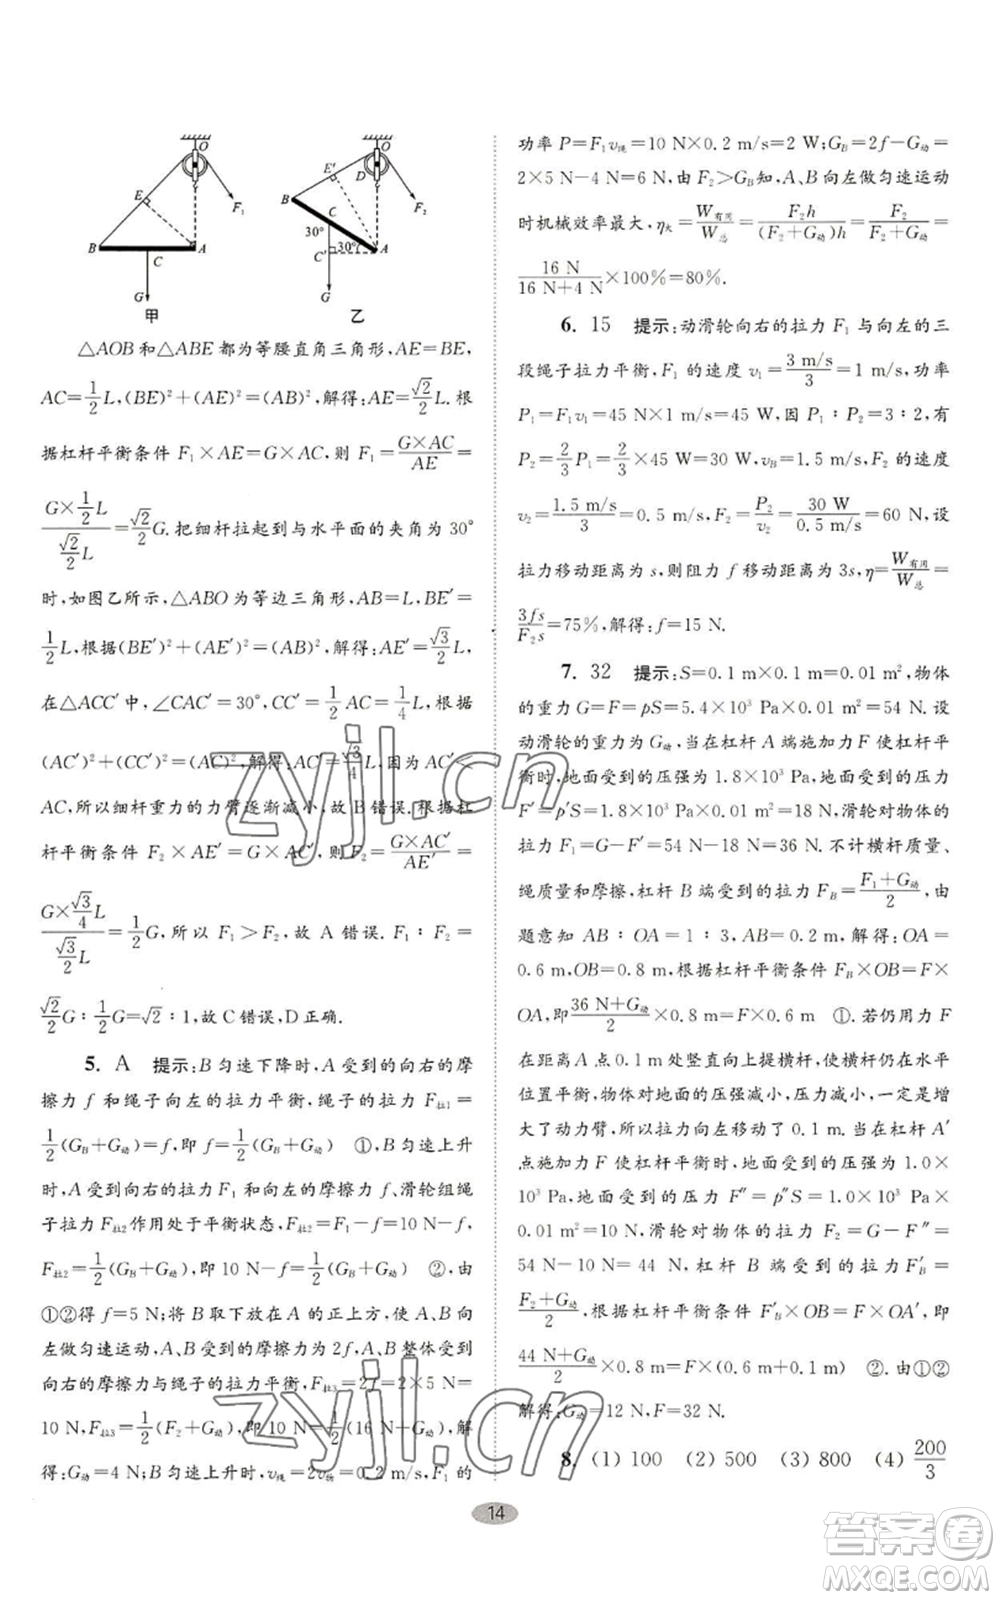 O
E
F₁
B
A
C
G
甲
O
E′
D
B
F₂
C
30°
30°
C′
A
G
乙
△AOB 和△ABE 都为等腰直角三角形,AE=BE,
AC=1/2L,(BE)²+(AE)²=(AB)²,解得:AE=√2/2L. 根
据杠杆平衡条件 F₁×AE=G×AC,则 F₁=G×AC/AE=
(G×1/2L)/(√2/2L)=√2/2G. 把细杆拉起到与水平面的夹角为 30°
时,如图乙所示,△ABO 为等边三角形,AB=L,BE′=
1/2L,根据(BE′)²+(AE′)²=(AB)²,解得:AE′=√3/2L,
在△ACC′中,∠CAC′=30°,CC′=1/2AC=1/4L,根据
(AC′)²+(CC′)²=(AC)²,解得:AC′=√3/4L,因为AC′<
AC,所以细杆重力的力臂逐渐减小,故 B 错误. 根据杠
杆平衡条件 F₂×AE′=G×AC′,则 F₂=G×AC′/AE′=
(G×√3/4L)/(√3/2L)=1/2G,所以 F₁>F₂,故 A 错误. F₁∶F₂=
√2/2G∶1/2G=√2∶1,故 C 错误,D 正确.
5. A 提示:B 匀速下降时,A 受到的向右的摩
擦力 f 和绳子向左的拉力平衡,绳子的拉力 F拉1=
1/2(G_B+G动)=f,即 f=1/2(G_B+G动) ①,B 匀速上升
时,A 受到向右的拉力 F₁ 和向左的摩擦力 f、滑轮组绳
子拉力 F拉2 作用处于平衡状态,F拉2=F₁-f=10 N-f,
F拉2=1/2(G_B+G动),即 10 N-f=1/2(G_B+G动) ②,由
①②得 f=5 N;将 B 取下放在 A 的正上方,使 A、B 向
左做匀速运动,A 受到的摩擦力为 2f,A、B 整体受到
向右的摩擦力与绳子的拉力平衡,F拉3=2f=2×5 N=
10 N,F拉3=1/2(F₂+G动),即 10 N=1/2(16 N+G动),解
得:G动=4 N;B 匀速上升时,v绳=2v物=0.2 m/s,F₁ 的
功率 P=F₁v绳=10 N×0.2 m/s=2 W;G_B=2f-G动=
2×5 N-4 N=6 N,由 F₂>G_B知,A、B 向左做匀速运动
时机械效率最大,η大=W有用/W总=F₂h/(F₂+G动)h=F₂/(F₂+G动)=
16 N/(16 N+4 N)×100%=80%.
6. 15 提示:动滑轮向右的拉力 F₁ 与向左的三
段绳子拉力平衡,F₁ 的速度 v₁=(3 m/s)/3=1 m/s,功率
P₁=F₁v₁=45 N×1 m/s=45 W,因 P₁∶P₂=3∶2,有
P₂=2/3P₁=2/3×45 W=30 W,v_B=1.5 m/s,F₂ 的速度
v₂=(1.5 m/s)/3=0.5 m/s,F₂=P₂/v₂=30 W/(0.5 m/s)=60 N,设
拉力移动距离为 s,则阻力 f 移动距离为 3s,η=W有用/W总=
3fs/F₂s=75%,解得:f=15 N.
7. 32 提示:S=0.1 m×0.1 m=0.01 m²,物体
的重力 G=F=pS=5.4×10³ Pa×0.01 m²=54 N. 设
动滑轮的重力为 G动,当在杠杆 A 端施加力 F 使杠杆平
衡时,地面受到的压强为 1.8×10³ Pa,地面受到的压力
F′=p′S=1.8×10³ Pa×0.01 m²=18 N,滑轮对物体的
拉力 F₁=G-F′=54 N-18 N=36 N. 不计横杆质量、
绳质量和摩擦,杠杆 B 端受到的拉力 F_B=(F₁+G动)/2,由
题意知 AB∶OA=1∶3,AB=0.2 m,解得:OA=
0.6 m,OB=0.8 m,根据杠杆平衡条件 F_B×OB=F×
OA,即(36 N+G动)/2×0.8 m=F×0.6 m ①. 若仍用力 F
在距离 A 点 0.1 m 处竖直向上提横杆,使横杆仍在水
平位置平衡,物体对地面的压强减小,压力减小,一定是增
大了动力臂,所以拉力向左移动了 0.1 m. 当在杠杆 A′
点施加力 F 使杠杆平衡时,地面受到的压强为 1.0×
10³ Pa,地面受到的压力 F″=p″S=1.0×10³ Pa×
0.01 m²=10 N,滑轮对物体的拉力 F₂=G-F″=
54 N-10 N=44 N,杠杆 B 端受到的拉力 F′_B=
(F₂+G动)/2,根据杠杆平衡条件 F′_B×OB=F×OA′,即
(44 N+G动)/2×0.8 m=F×(0.6 m+0.1 m) ②. 由①②
解得:G动=12 N,F=32 N.
8. (1) 100 (2) 500 (3) 800 (4) 200/3
14
zyjl.cn
zyjl.cn
答案卷
MXQE.COM